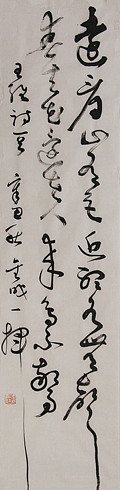 遠看山有色近聽水無聲
春去花還在人来鳥不驚
王維詩 辛丑秋 一揮